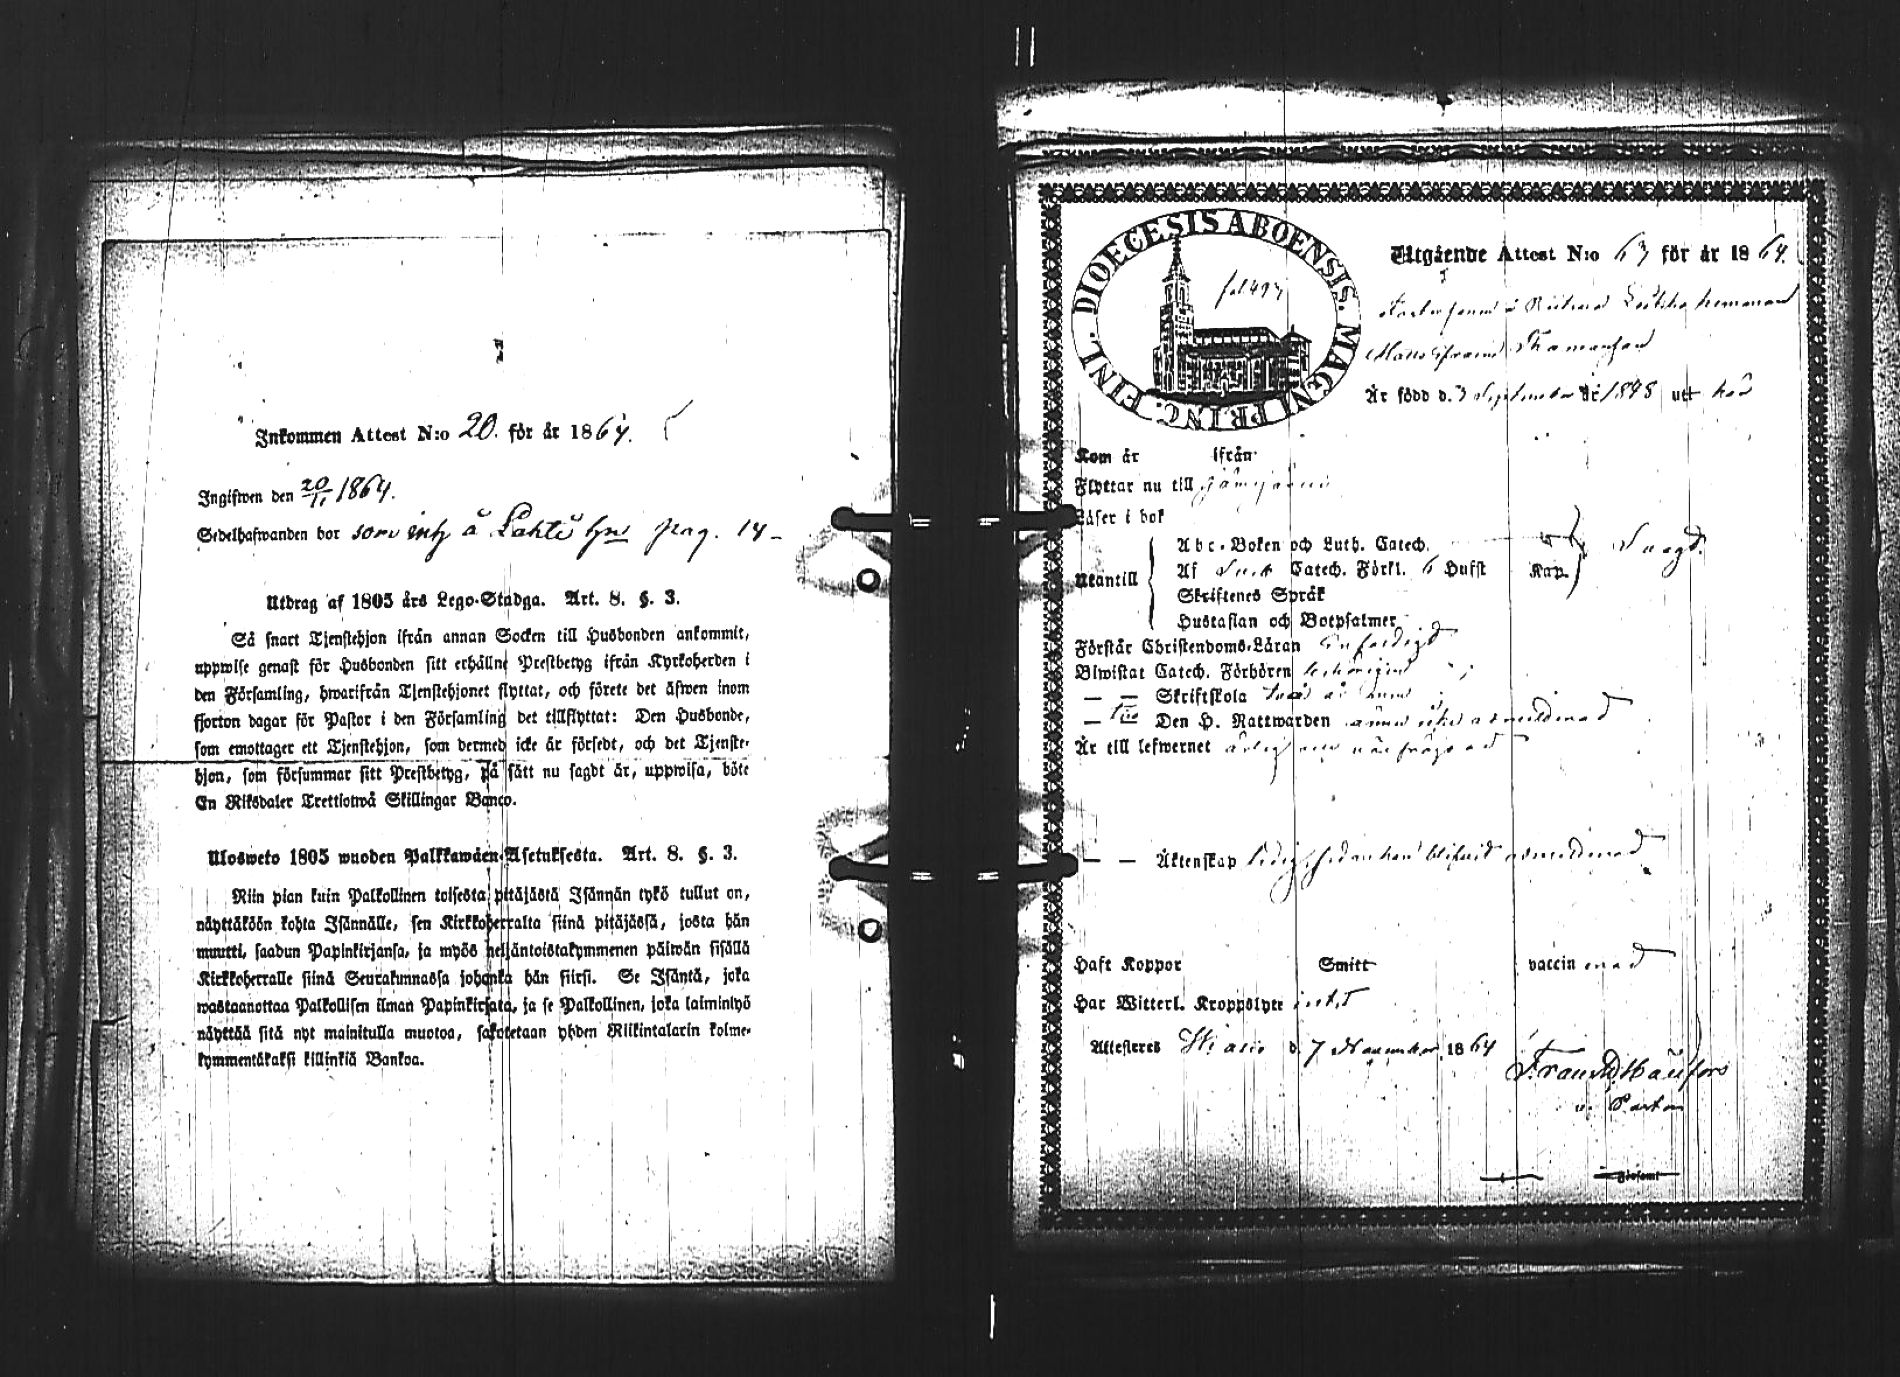 Inkommen Attest N:o 20. för år 1864.
Ingifwen den 20/11 1864.
Sedelhafwanden bor som inh å Lahti hn pag. 14
Utdrag af 1805 års Lego-Stadga. Art. 8. §. 3.
Så snart Tjenstehjon ifrån annan Socken till Husbonden ankommit,
uppwise genast för Husbonden sitt erhållne Prestbetyg ifrån Kyrkoherden i
den Församling, hwarifrån Tjenstehjonet flyttat, och förete det äfwen inom
fjorton dagar för Pastor i den Församling det tillflyttat: Den Husbonde,
som emottager ett Tjenstehjon, som dermed icke är försedt, och det Tjenste-
hjon, som försummar sitt Prestbetyg, på sätt nu sagdt är, uppwisa, böte
En Riksdaler Trettiotwå Skillingar Banco.
Ulosweto 1805 wuoden Palkkawäen-Asetuksesta. Art. 8. §. 3.
Niin pian kuin Palkollinen toisesta pitäjästä Isännän tykö tullut on,
näyttäköön kohta Isännälle, sen Kirkkoherralta siinä pitäjässä, josta hän
muutti, saadun Papinkirjansa, ja myös neljäntoistakymmenen päiwän sisällä
Kirkkoherralle siinä Seurakunnassa johonka hän siirsi. Se Isäntä, joka
wastaanottaa Palkollisen ilman Papinkirjata, ja se Palkollinen, joka laiminlyö
näyttää sitä nyt mainitulla muotoa, sakotetaan yhden Riikintalarin kolme-
kymmentäkaksi killinkiä Bankoa.
DIOECESIS ABOENSIS. MAGNI PRINC. FINL.
fol 497
Utgående Attest N:o 63 för år 1864.
Är född d. 3 September år 1848 utt
Kom år ifrån
Flyttar nu till
Läser i bok
Utantill
Abc-Boken och Luth. Catech.
Af Catech. Förkl. 6 Hufst Kap. Swagt.
Skriftenes Språk
Hustaflan och Botpsalmer
Förstår Christendoms-Läran enfaldigt
Biwistat Catech. Förhören behörigen
— — Skriftskola
— — Den H. Nattwarden ännu icke admitterad
Är till lefwernet ärlig och wälfrägdad
— — Äktenskap ledig, sedan han blifwit admitterad
Haft Koppor Smitt vaccinerad
Har Witterl. Kroppslyte intet
Attesteras d. 7 November 1864
v. Pastor